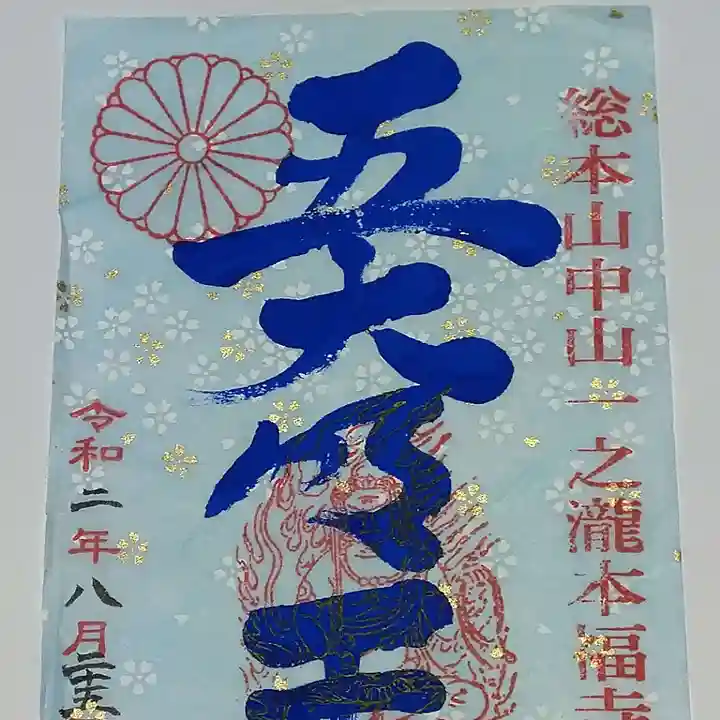 総本山中山一之瀧本福寺
五大明王
令和二年八月二十五